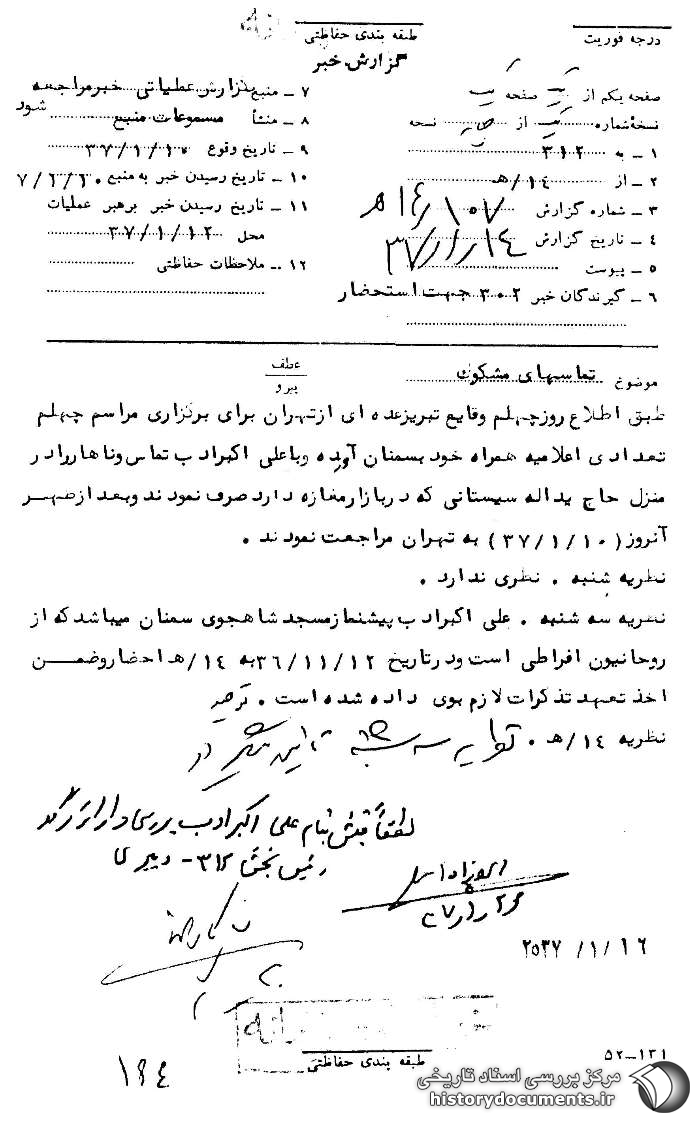 درجه فوریت
طبقه بندی حفاظتی
گزارش خبر
صفحه یکم از یک صفحه
نسخهٔ شماره یک از نسخه
۱ ـ به ۳۱۲
۲ ـ از ۱۴/هـ
۳ ـ شماره گزارش ۱۰۷/۱۴هـ
۴ ـ تاریخ گزارش ۳۷/۱/۱۴
۵ ـ پیوست
۶ ـ گیرندگان خبر ۳۰۲ جهت استحضار
۷ ـ منبع بگزارش عملیاتی خبر مراجعه شود
۸ ـ منشأ مسموعات منبع
۹ ـ تاریخ وقوع ۳۷/۱/۱۰
۱۰ ـ تاریخ رسیدن خبر به منبع
۱۱ ـ تاریخ رسیدن خبر برهبر عملیات
محل ۳۷/۱/۱۲
۱۲ ـ ملاحظات حفاظتی
موضوع تماسهای مشکوک
عطف
پیرو
طبق اطلاع روز چهلم وقایع تبریز عده ای از تهران برای برگزاری مراسم چهلم
تعدادی اعلامیه همراه خود بسمنان آورده و با علی اکبر ادب تماس و ناهار را در
منزل حاج یداله سیستانی که در بازار مغازه دارد صرف نمودند و بعد از ظهر
آنروز (۳۷/۱/۱۰) به تهران مراجعت نمودند .
نظریه شنبه . نظری ندارد .
نظریه سه شنبه . علی اکبر ادب پیشنماز مسجد شاهجوی سمنان میباشد که از
روحانیون افراطی است و در تاریخ ۳۶/۱۱/۱۲ به ۱۴/هـ احضار و ضمن
اخذ تعهد تذکرات لازم بوی داده شده است .
نظریه ۱۴/هـ . نظریه سه شنبه
لطفاً علی اکبر ادب بررسی
رئیس بخش ۳۱۲ ـ
۲۵۳۷/۱/۱۶
طبقه بندی حفاظتی
۵۲ـ۱۳۱
۱۶۴
مرکز بررسی اسناد تاریخی
historydocuments.ir